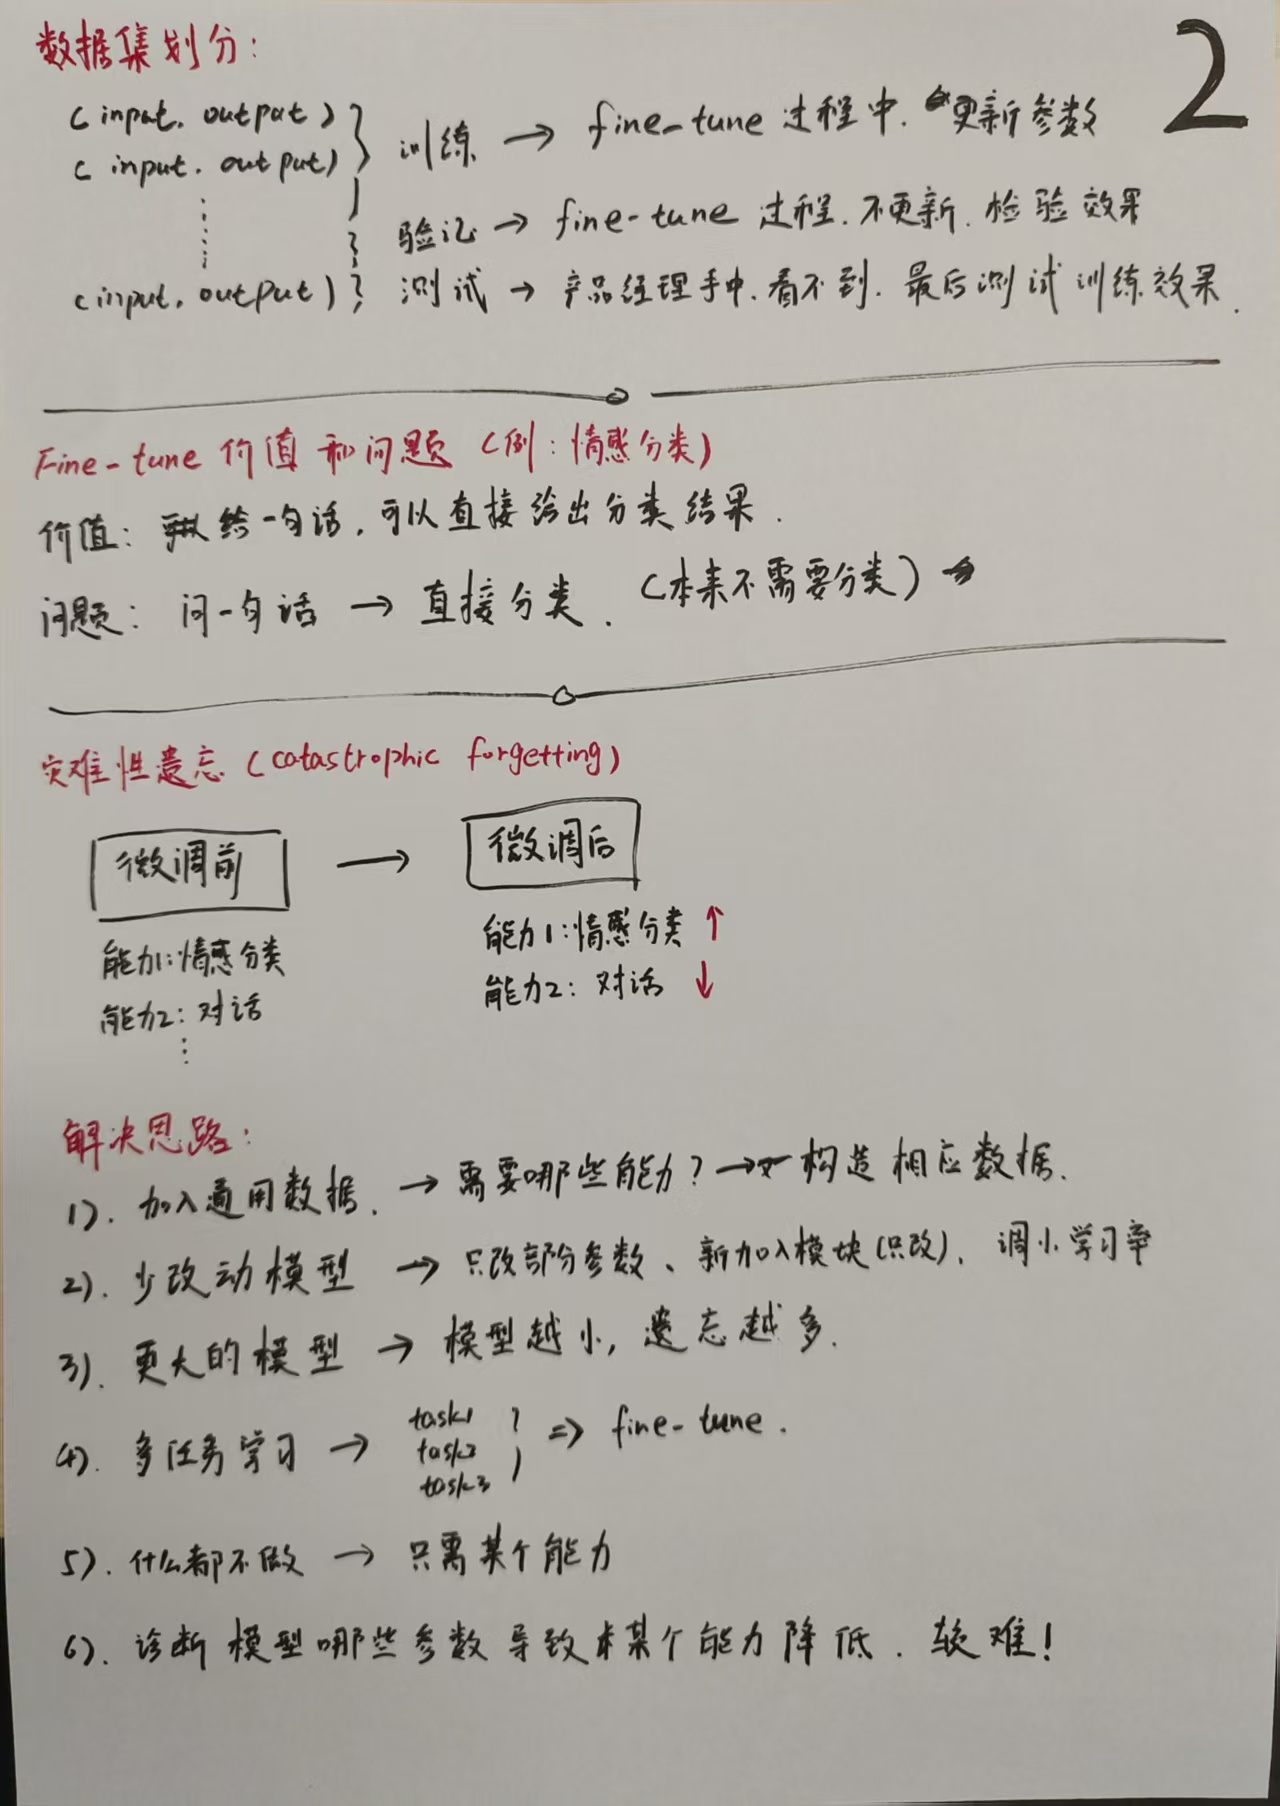 2
数据集划分:
(input, output)
(input, output)
(input, output)
训练 → fine-tune 过程中. 更新参数
验证 → fine-tune 过程. 不更新. 检验效果
测试 → 产品经理手中, 看不到. 最后测试训练效果.
Fine-tune 价值和问题 (例: 情感分类)
价值: 给一句话, 可以直接给出分类结果.
问题: 问一句话 → 直接分类. (本来不需要分类)
灾难性遗忘 (catastrophic forgetting)
微调前 → 微调后
能力1: 情感分类
能力2: 对话
能力1: 情感分类 ↑
能力2: 对话 ↓
解决思路:
1). 加入通用数据. → 需要哪些能力? → 构造相应数据.
2). 少改动模型 → 只改部分参数、新加入模块(只改), 调小学习率
3). 更大的模型 → 模型越小, 遗忘越多.
4). 多任务学习 → task1
task2
task3
⇒ fine-tune.
5). 什么都不做 → 只需某个能力
6). 诊断模型哪些参数导致某个能力降低. 较难!